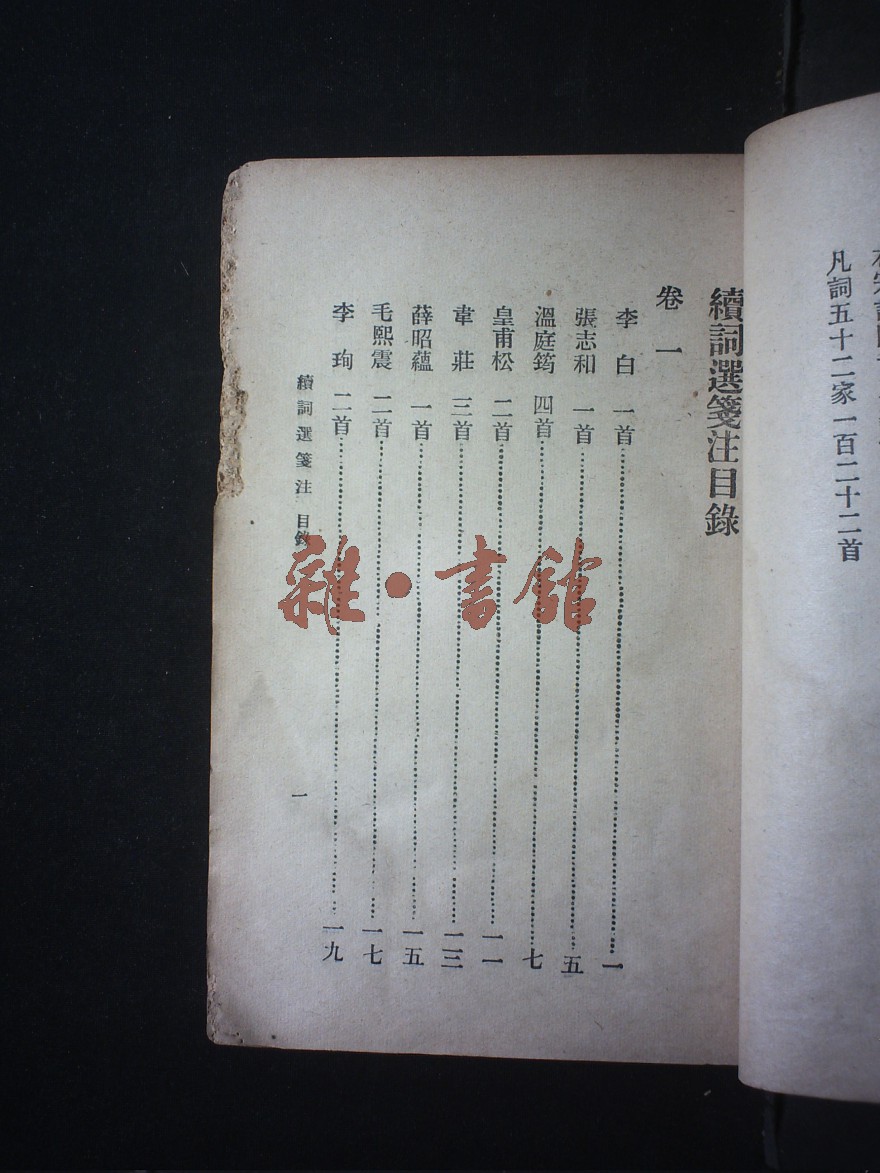 凡詞五十二家一百二十二首
續詞選箋注目錄
卷一
李白 一首 一
張志和 一首 五
溫庭筠 四首 七
皇甫松 二首 一一
韋莊 三首 一三
薛昭蘊 一首 一五
毛熙震 二首 一七
李珣 二首 一九
續詞選箋注 目錄 一
雜·書館